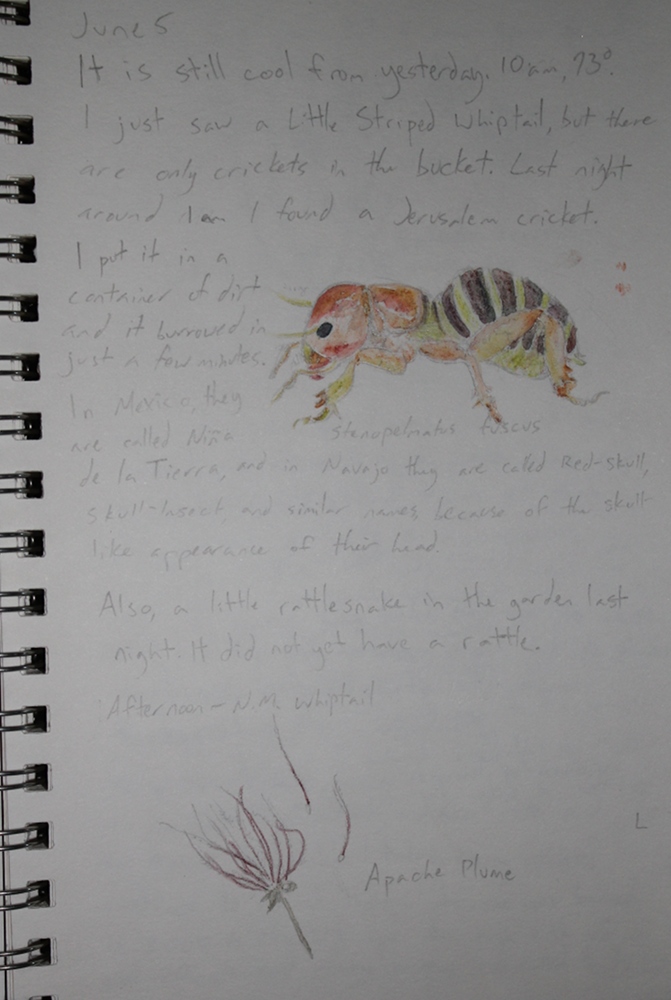 June 5
It is still cool from yesterday. 10am, 73°.
I just saw a Little Striped Whiptail, but there
are only crickets in the bucket. Last night
around 1am I found a Jerusalem cricket.
I put it in a
container of dirt
and it burrowed in
just a few minutes.
In Mexico, they
are called Niña
Stenopelmatus fuscus
de la Tierra, and in Navajo they are called Red-skull,
skull-Insect, and similar names because of the skull
like appearance of their head.
Also, a little rattlesnake in the garden last
night. It did not yet have a rattle.
Afternoon - N.M. Whiptail
Apache Plume
L